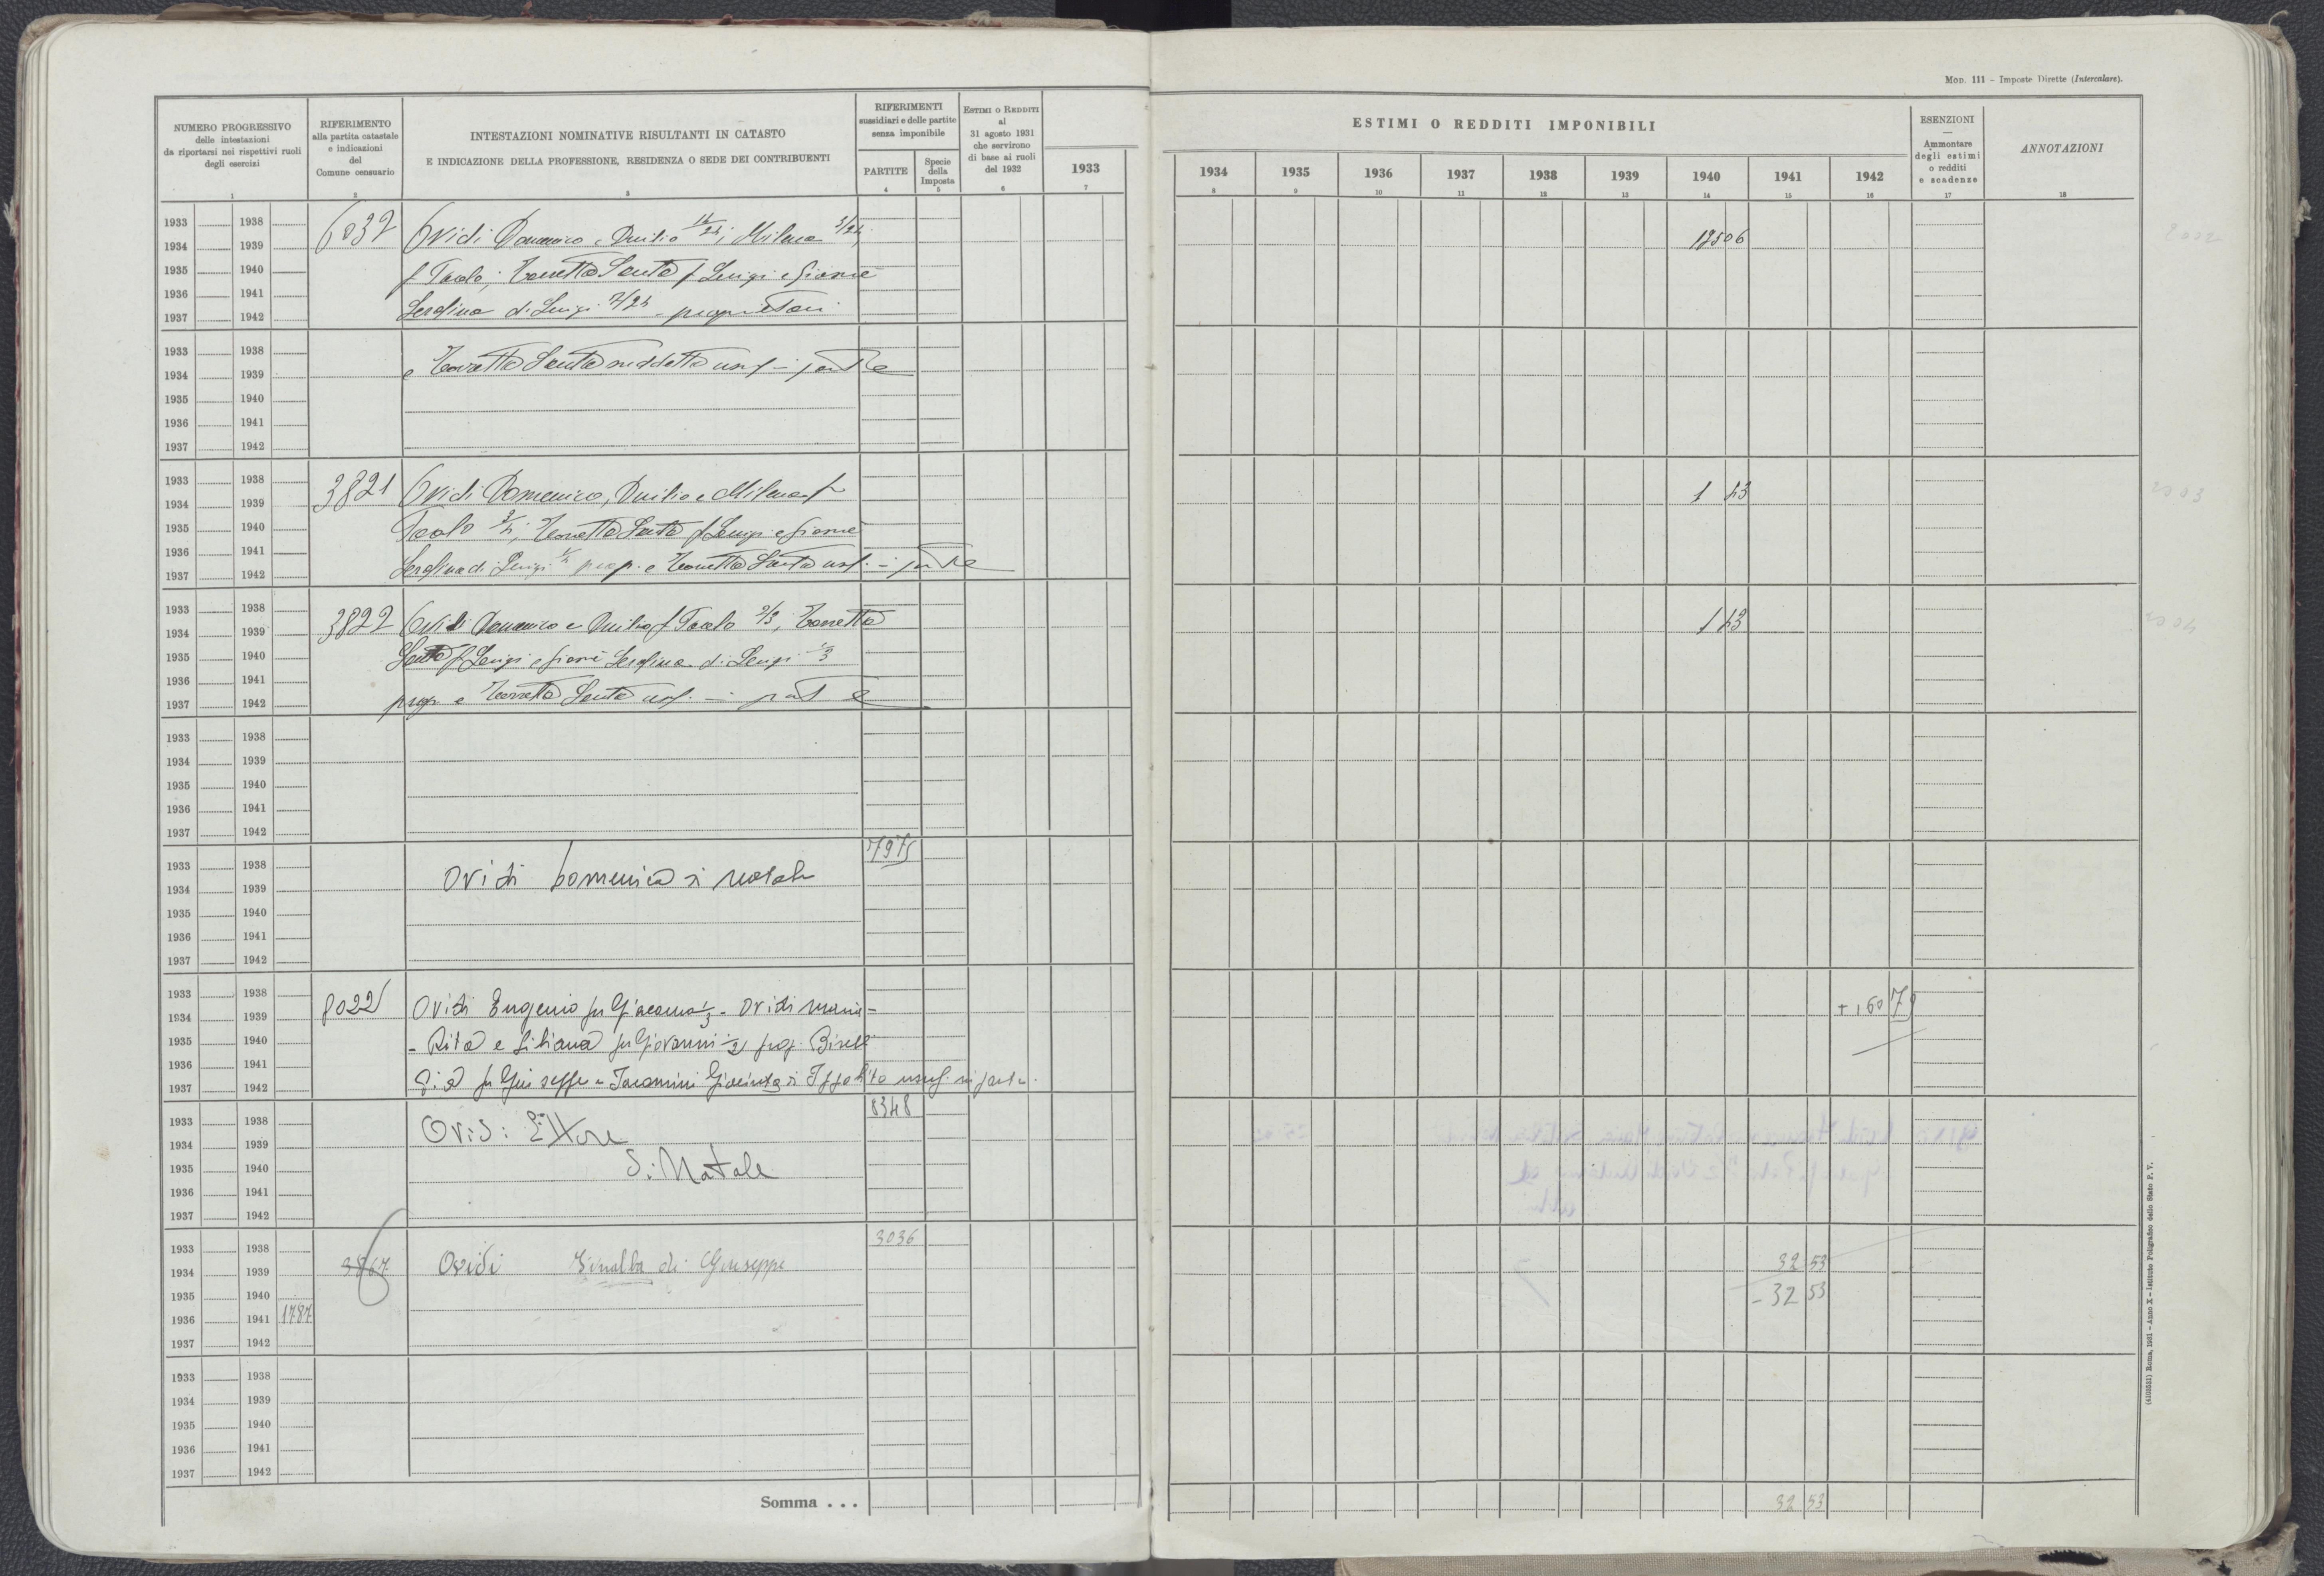 Mod. 111 - Imposte Dirette (Intercalare).
NUMERO PROGRESSIVO
delle intestazioni
da riportarsi nei rispettivi ruoli
degli esercizi
1
RIFERIMENTO
alla partita catastale
e indicazioni
del
Comune censuario
2
INTESTAZIONI NOMINATIVE RISULTANTI IN CATASTO
E INDICAZIONE DELLA PROFESSIONE, RESIDENZA O SEDE DEI CONTRIBUENTI
3
RIFERIMENTI
sussidiari e delle partite
senza imponibile
PARTITE
4
Specie
della
Imposta
5
Estimi o Redditi
al
31 agosto 1931
che servirono
di base ai ruoli
del 1932
6
1933
7
ESTIMI O REDDITI IMPONIBILI
1934 1935 1936 1937 1938 1939 1940 1941 1942
8 9 10 11 12 13 14 15 16
ESENZIONI
—
Ammontare
degli estimi
o redditi
e scadenze
17
ANNOTAZIONI
18
1933 1938 6032 Ovidi Domenico e Duilio Milena 3/24
1934 1939 12506
1935 1940 f Paolo; Santa f Luigi e
1936 1941
1937 1942 Serafina di Luigi 7/24 - proprietari
1933 1938
1934 1939 e Santa suddetta usuf -
1935 1940
1936 1941
1937 1942
1933 1938
1934 1939 3821 Ovidi Domenico, Duilio e Milena f 1 43
1935 1940 Paolo Santa f Luigi e
1936 1941
1937 1942 Serafina di Luigi prop. e Santa usf. -
1933 1938
1934 1939 3822 Ovidi Domenico e Duilio f Paolo 2/3, 1 43
1935 1940 Santa f Luigi e Serafina di Luigi
1936 1941
1937 1942 prop e Santa usf. -
1933 1938
1934 1939
1935 1940
1936 1941
1937 1942
7975
1933 1938
1934 1939 Ovidi Domenico di Natale
1935 1940
1936 1941
1937 1942
1933 1938
1934 1939 8022 Ovidi Eugenio fu Giacomo - Ovidi Maria -
1935 1940 - Rita e Liliana fu Giovanni prop.
1936 1941
1937 1942 fu Giuseppe e Giacinta di Ippolito usuf. in parte.
8348
1933 1938 Ovidi Ettore
1934 1939
1935 1940 di Natale
1936 1941
1937 1942
3036
1933 1938
1934 1939 3867 Ovidi di Giuseppe 32 53
1935 1940 - 32 53
1936 1941 1787
1937 1942
1933 1938
1934 1939
1935 1940
1936 1941
1937 1942
Somma . . . 32 53
(4103531) Roma, 1931 - Anno X - Istituto Poligrafico dello Stato P. V.